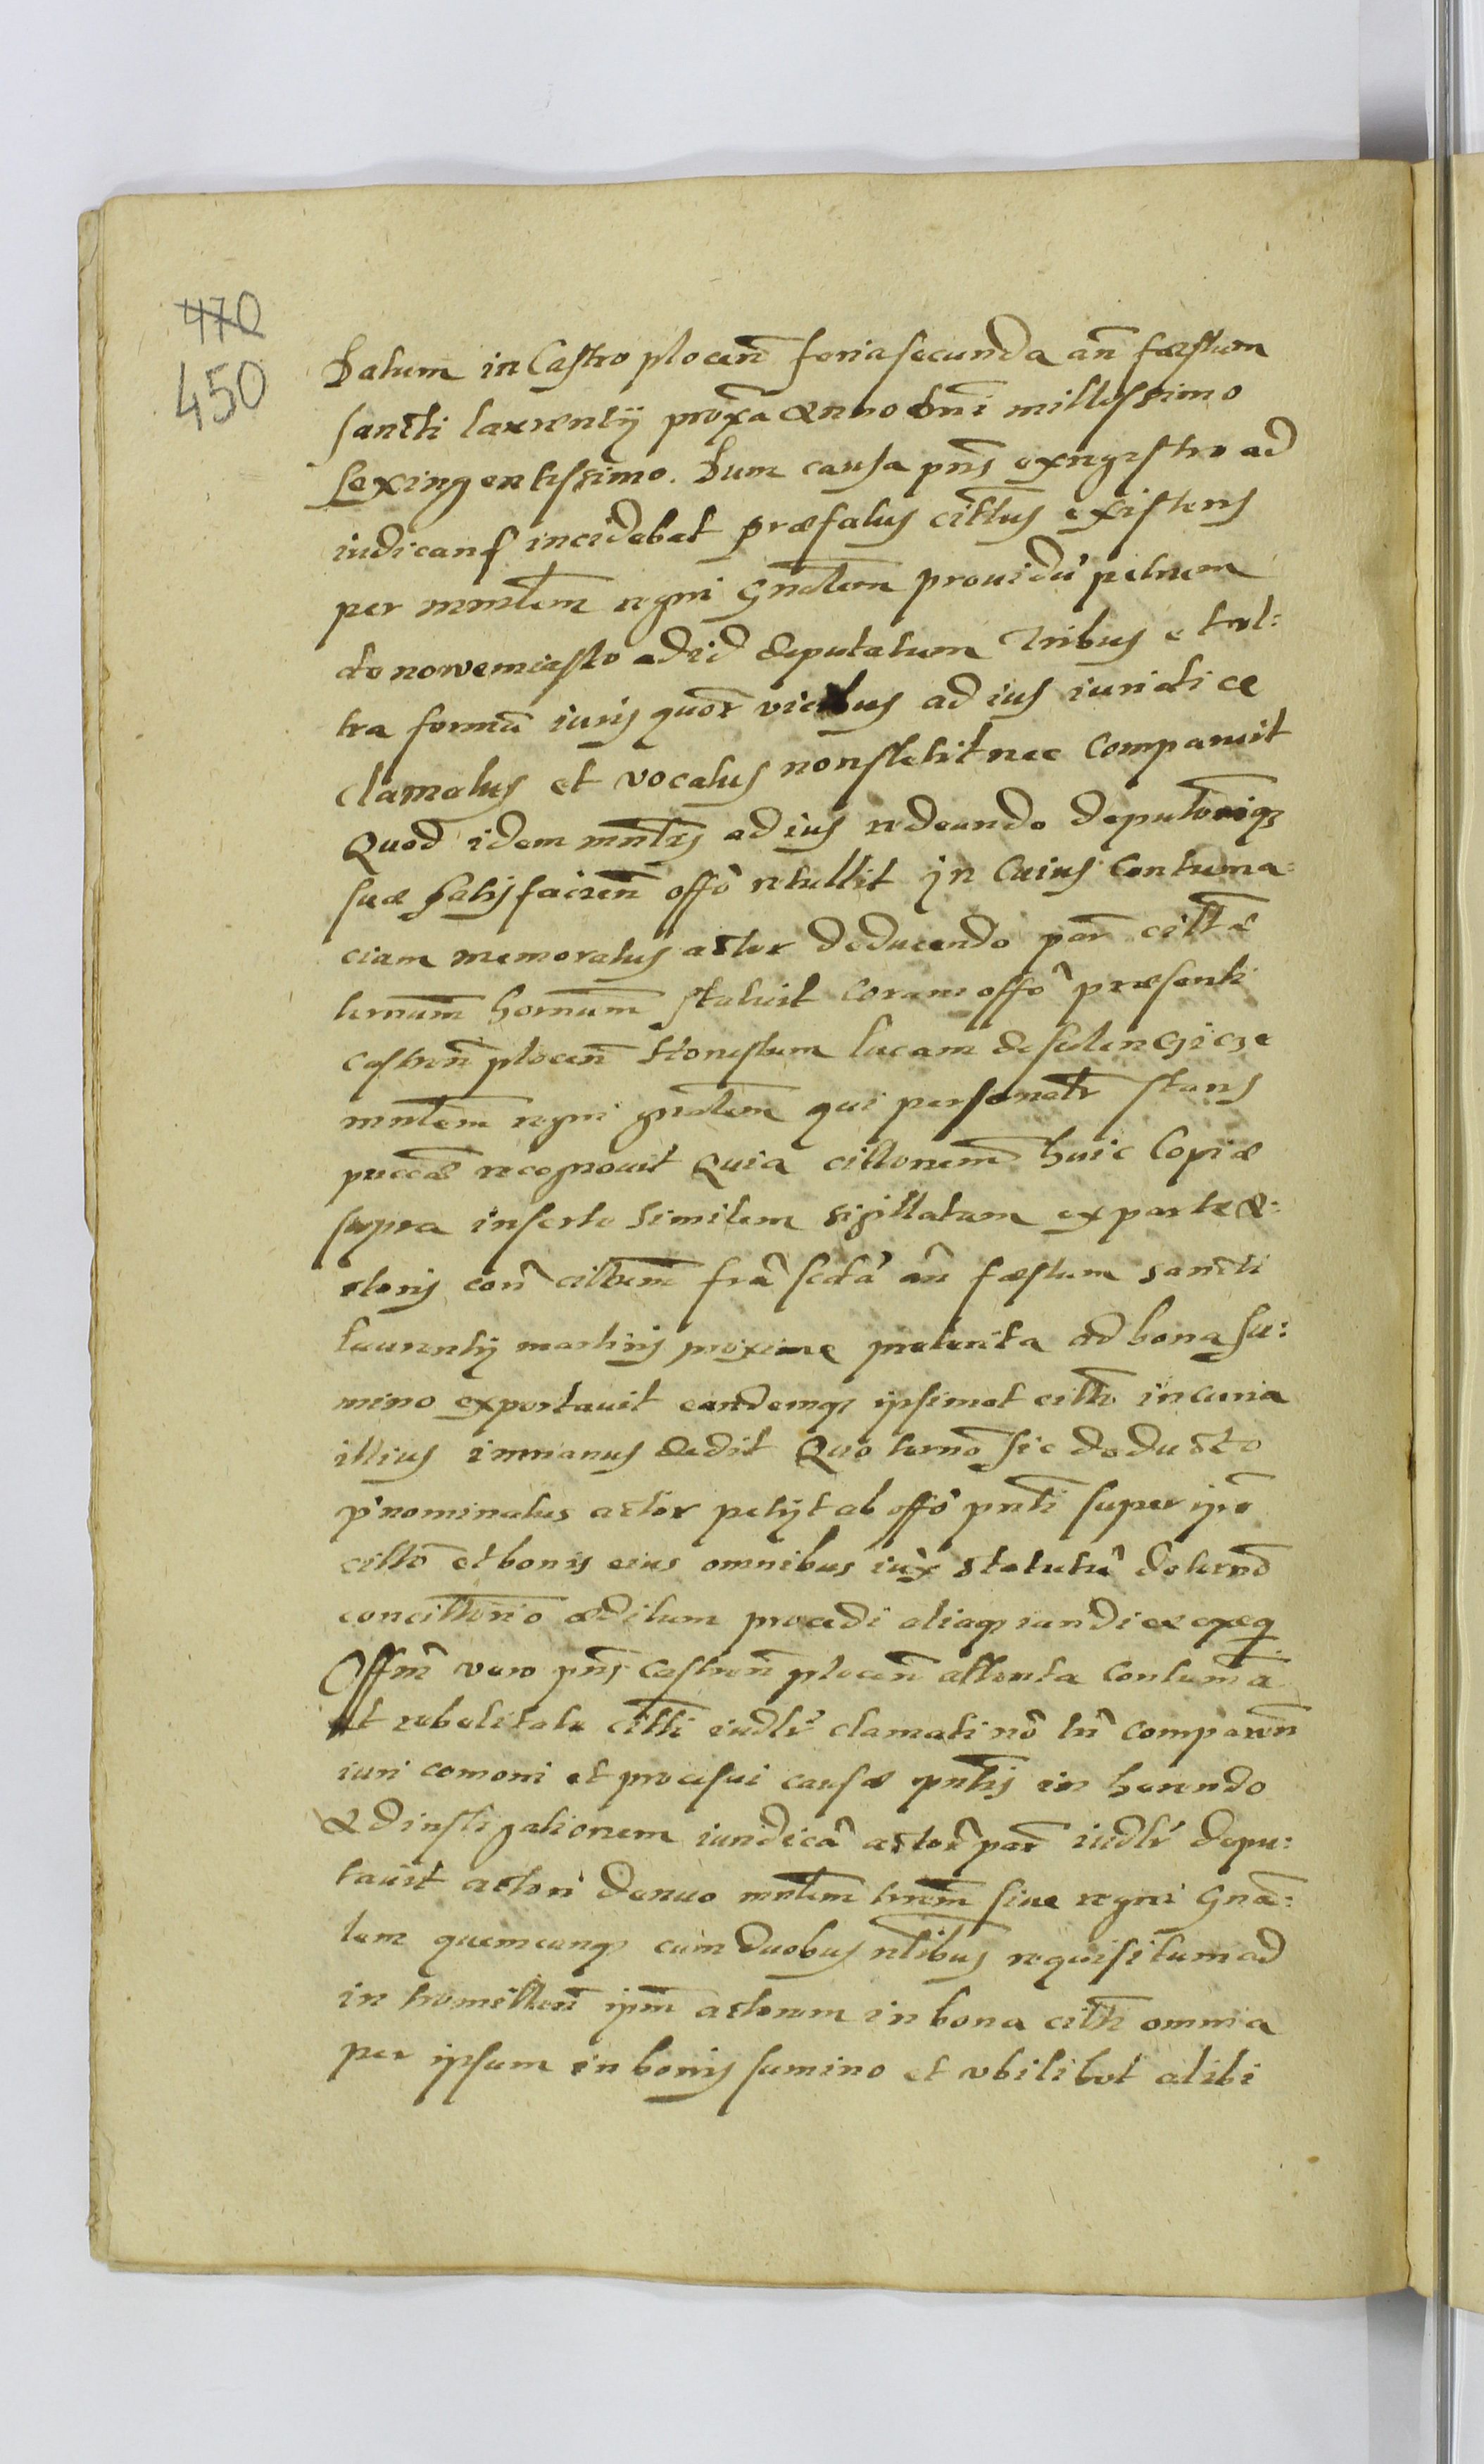 470
450
Datum in Castro plocen̄ feria secunda an̄ fæstum
sancti laurentÿ prox̄a anno dn̄i millessimo
sexingentessimo. Dum causa pn̄s ex regestro ad
iudicand incidebat præfatus cittus existens
per mn̄lem regni Gn̄alem prouidū petrum
de nowemiasto ad id deputatum Tribus et vl:
tra formā iuris quor̄ vicibus ad ius iuridice
clamatus et vocatus non stetit nec Comparuit
Quod idem mn̄lis ad ius redeundo deputōniq3
suæ satisfacien̄ offō retullit in Cuius Contuma:
ciam memoratus actor deducendo par̄ cittā
ternum̄ hornum̄ statuit Coram offō præsenti
castren̄ plocen̄ Honestum lucam de sulenczicze
mn̄lem regni gn̄alem qui personalr̄ stans
recognouit Quia cittonem huic Copiæ
supra inserto similem sigillatam ex parte a:
ctoris con̄ cittum frā scdā an̄ fæstum sancti
laurentÿ martiris proxime preterita ad bona su:
mino exportauit eandemq3 ipsimet citto in curia
illius in manus dedit Quo termō sic deducto
p̄nominatus actor petÿt ab offō pn̄ti super ip̄o
cittō et bonis eius omnibus iux̄ statutū de termō
concittorio æditum procedi aliaq3 iuridice exeq
Offm̄ vero pn̄s Castren̄ plocen̄ attenta Contumā
et rebelitate citti iudlr̄ clamati nō tn̄ comparen̄
iuri comoni et procesui causæ pn̄tis in herendo
Ad instigationem iuridicā actor̄ par̄ iudlr̄ depu:
tauit actori denuo mn̄lem trem̄ siue regni Gn̄a:
lem quemcunq3 cum duobus n̄libus requisitum ad
intromitten̄ ip̄m actorem in bona citti omnia
per ipsum in bonis sumino et vbilibet alibi